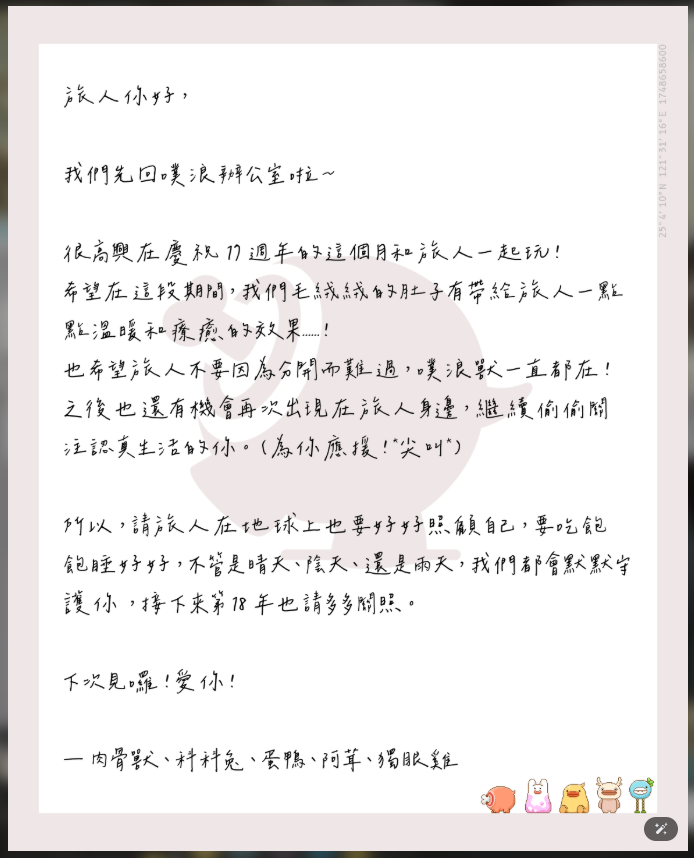 旅人你好，
我們先回噗浪辦公室啦~
很高興在慶祝17週年的這個月和旅人一起玩！
希望在這段期間，我們毛絨絨的肚子有帶給旅人一點
點溫暖和療癒的效果......！
也希望旅人不要因為分開而難過，噗浪獸一直都在！
之後也還有機會再次出現在旅人身邊，繼續偷偷關
注認真生活的你。(為你應援！*尖叫*)
所以，請旅人在地球上也要好好照顧自己，要吃飽
飽睡好好，不管是晴天、陰天、還是雨天，我們都會默默守
護你，接下來第18年也請多多關照。
下次見囉！愛你！
— 肉骨獸、科科兔、蛋鴨、阿茸、獨眼雞
25°4'10"N 121°31'16"E 1748658600